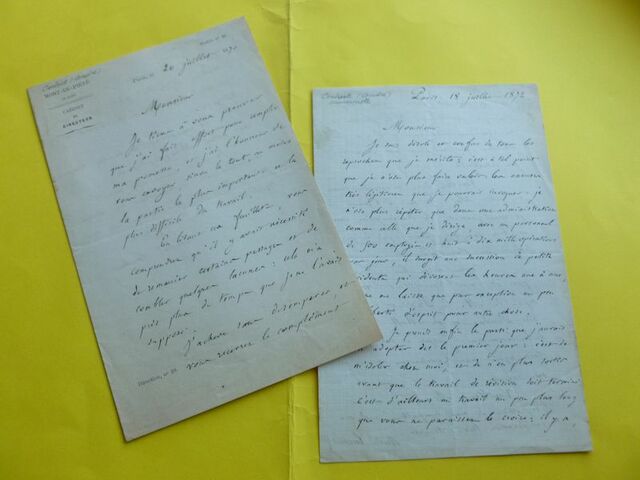 MONT-DE-PIÉTÉ
CABINET
DU
DIRECTEUR
20 juillet
Monsieur
Je tiens à vous prouver
que j'ai fait effort pour remplir
ma promesse, et j'ai l'honneur de
vous envoyer, sinon le tout, au moins
la partie la plus importante et la
plus difficile du travail.
En lisant ces feuillets, vous
comprendrez qu'il y avait nécessité
de remanier certains passages et de
combler quelques lacunes : cela m'a
pris plus de temps que je ne l'avais
supposé.
J'achève sans désemparer, et
vous recevrez le complément
Paris 18 juillet 1872
Monsieur
Je suis désolé et confus de tous les
reproches que je mérite ; c'est à tel point
que je n'ose plus faire valoir les excuses
très légitimes que je pourrais invoquer : je
n'ose plus répéter que dans une administration
comme celle que je dirige, avec un personnel
de 500 employés et huit à dix mille opérations
par jour, il surgit une succession de petits
incidents qui dévorent les heures une à une,
ne me laisse que par exception un peu
liberté d'esprit pour autre chose.
Je prends enfin le parti que j'aurais
adopter dès le premier jour : c'est de
m'isoler chez moi, et de n'en plus sortir
avant que le travail de révision soit terminé
C'est d'ailleurs un travail un peu plus long
que vous ne paraissez le croire ; il y a,